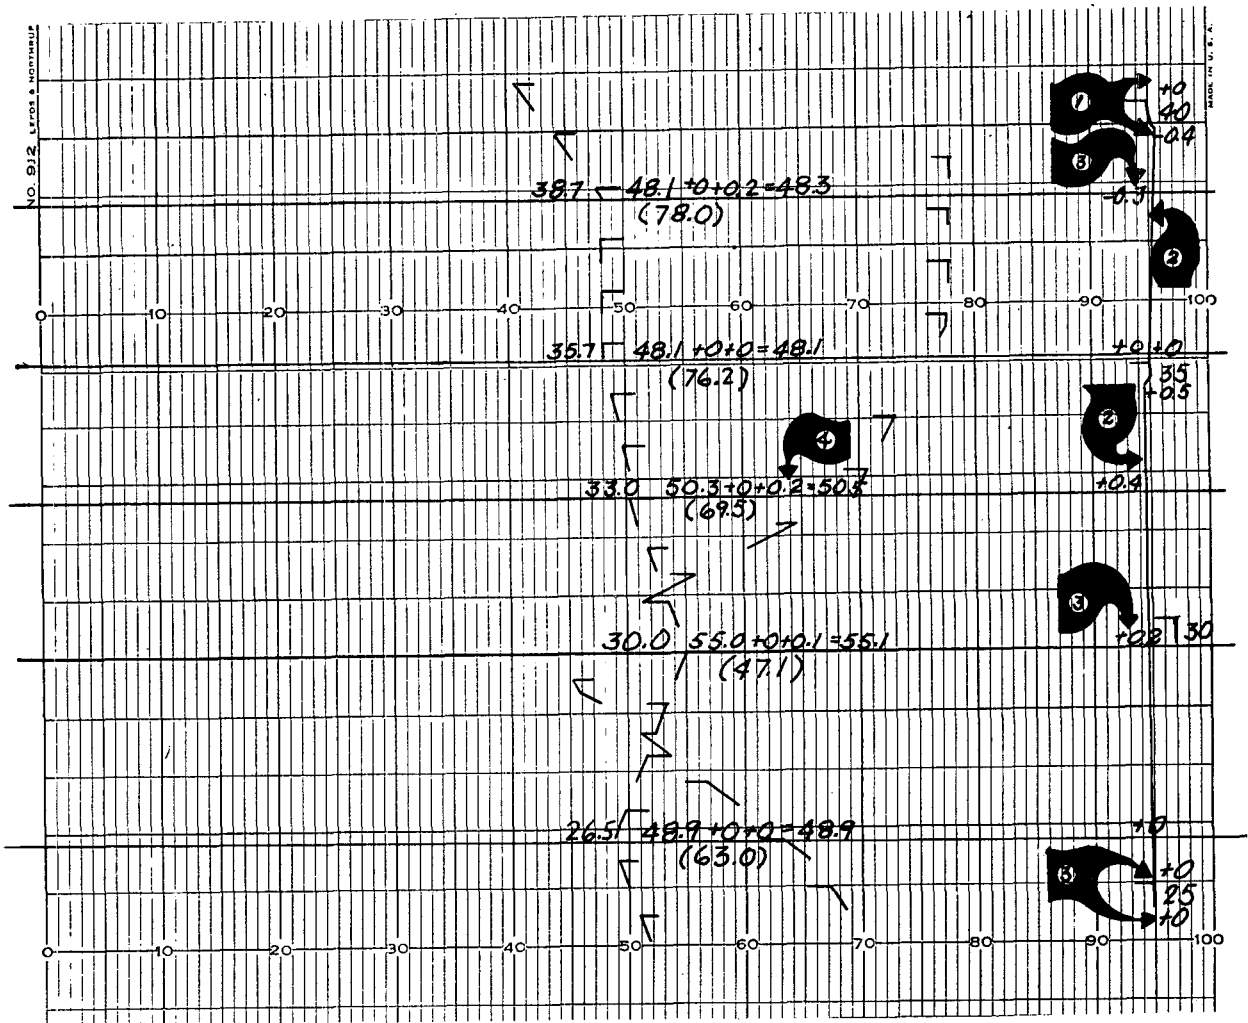 NO. 912 LEEDS & NORTHRUP
MADE IN U. S. A.
1
+0
40
-0.4
3
-0.3
38.7 48.1 +0+0.2 =48.3
(78.0)
2
0 10 20 30 40 50 60 70 80 90 100
35.7 48.1 +0+0 =48.1
+0 +0
(76.2)
35
+0.5
2
4
33.0 50.3+0+0.2=50.5
+0.4
(69.5)
3
30.0 55.0+0+0.1 =55.1
+0.2
30
(47.1)
26.5 48.9 +0+0 =48.9
+0
(63.0)
+0
25
+0
0 10 20 30 40 50 60 70 80 90 100